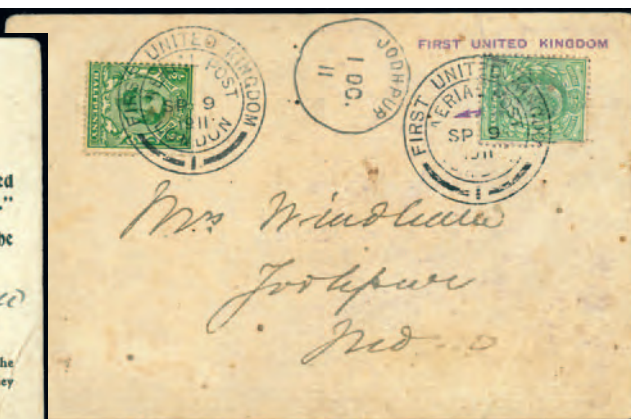 FIRST UNITED KINGDOM
FIRST UNITED KINGDOM
AERIAL POST
SP 9
1911
LONDON
1
JODHPUR
1 OC.
11
FIRST UNITED KINGDOM
AERIAL POST
SP 9
1911
1
HALFPENNY
Mrs Windham
Jodhpur
Ind
ed
."
he
he
ey